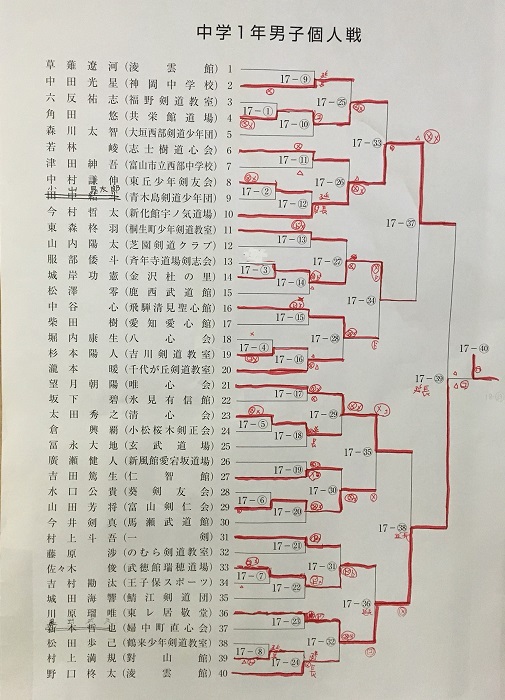 中学1年男子個人戦
草薙遼河(淩雲館) 1
中田光星(神岡中学校) 2
六反祐志(福野剣道教室) 3
角田悠(共栄館道場) 4
森川太智(大垣西部剣道少年団) 5
若林崚(志士樹道心会) 6
津田紳吾(富山市立西部中学校) 7
中村謙伸(東丘少年剣友会) 8
(青木島剣道少年団) 9
今村哲太(新化館宇ノ気道場) 10
東森柊羽(桐生町少年剣道教室) 11
山内陽太(芝園剣道クラブ) 12
服部倭斗(斉年寺道場剣志会) 13
城岸功憲(金沢杜の里) 14
松澤零(鹿西武道館) 15
中谷心(飛騨清見聖心館) 16
柴田樹(愛知愛心館) 17
堀内康生(八心会) 18
杉本陽人(吉川剣道教室) 19
瀧本暖(千代が丘剣道教室) 20
望月朝陽(唯心会) 21
坂下碧(氷見有信館) 22
太田秀之(清心会) 23
倉興覇(小松桜木剣正会) 24
冨永大地(玄武道場) 25
廣瀬健人(新風館愛宕坂道場) 26
吉田篤生(仁智館) 27
水口公貴(葵剣友会) 28
山田芳将(富山剣仁会) 29
今井剣真(馬瀬武道館) 30
村上斗吾(一剣) 31
藤原渉(のむら剣道教室) 32
佐々木俊(武徳館瑞穂道場) 33
吉村勘汰(王子保スポーツ) 34
城田海響(鯖江剣道団) 35
川原瑠唯(東レ居敬堂) 36
哲也(婦中町直心会) 37
松田歩己(鶴来少年剣道教室) 38
村上満規(對山館) 39
野口柊太(淩雲館) 40
17-①
17-②
17-③
17-④
17-⑤
17-⑥
17-⑦
17-⑧
17-⑨
17-⑩
17-⑪
17-⑫
17-⑬
17-⑭
17-⑮
17-⑯
17-⑰
17-⑱
17-⑲
17-⑳
17-㉑
17-㉒
17-㉓
17-㉔
17-㉕
17-㉖
17-㉗
17-㉘
17-㉙
17-㉚
17-㉛
17-㉜
17-㉝
17-㉞
17-㉟
17-㊱
17-㊲
17-㊳
17-㊴
17-㊵
延長